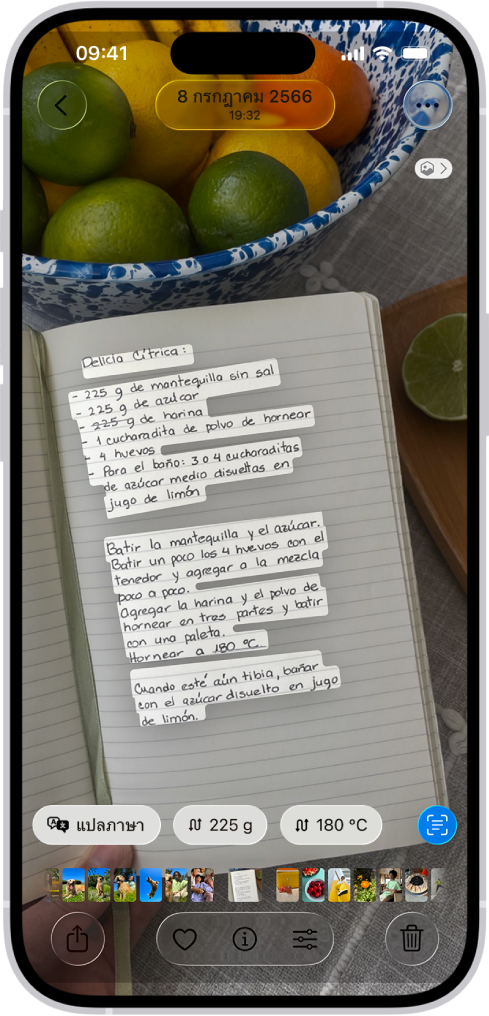 09:41
8 กรกฎาคม 2566
19:32
Delicia Cítrica:
- 225 g de mantequilla sin sal
- 225 g de azúcar
- 225 g de harina
- 1 cucharadita de polvo de hornear
- 4 huevos
- Para el baño: 3 o 4 cucharaditas
de azúcar medio disueltas en
jugo de limón
Batir la mantequilla y el azúcar.
Batir un poco los 4 huevos con el
tenedor y agregar a la mezcla
poco a poco.
Agregar la harina y el polvo de
hornear en tres partes y batir
con una paleta.
Hornear a 180 °C.
Cuando esté aún tibia, bañar
con el azúcar disuelto en jugo
de limón.
แปลภาษา
225 g
180 °C